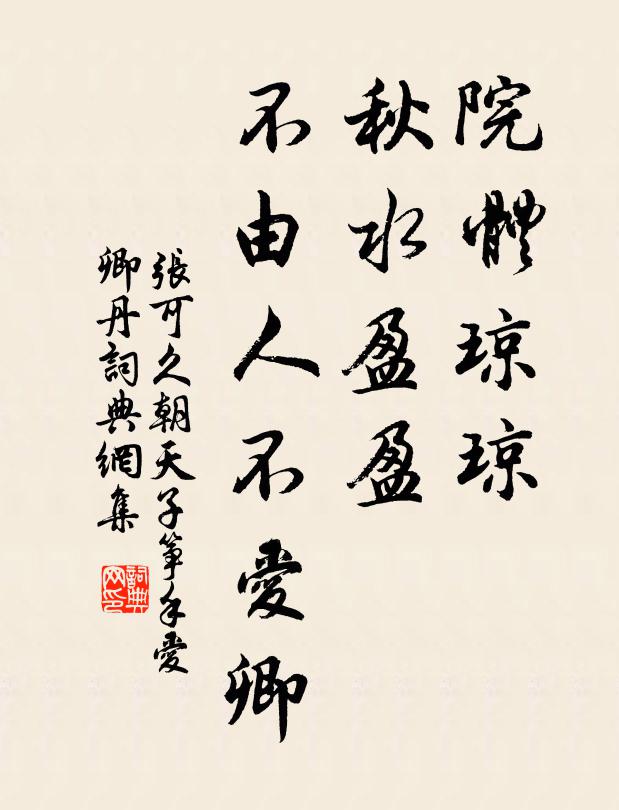 院體琼琼
秋水盈盈
不由人不愛卿
張可久朝天子箏手愛
卿丹詞典網集
詞典网印